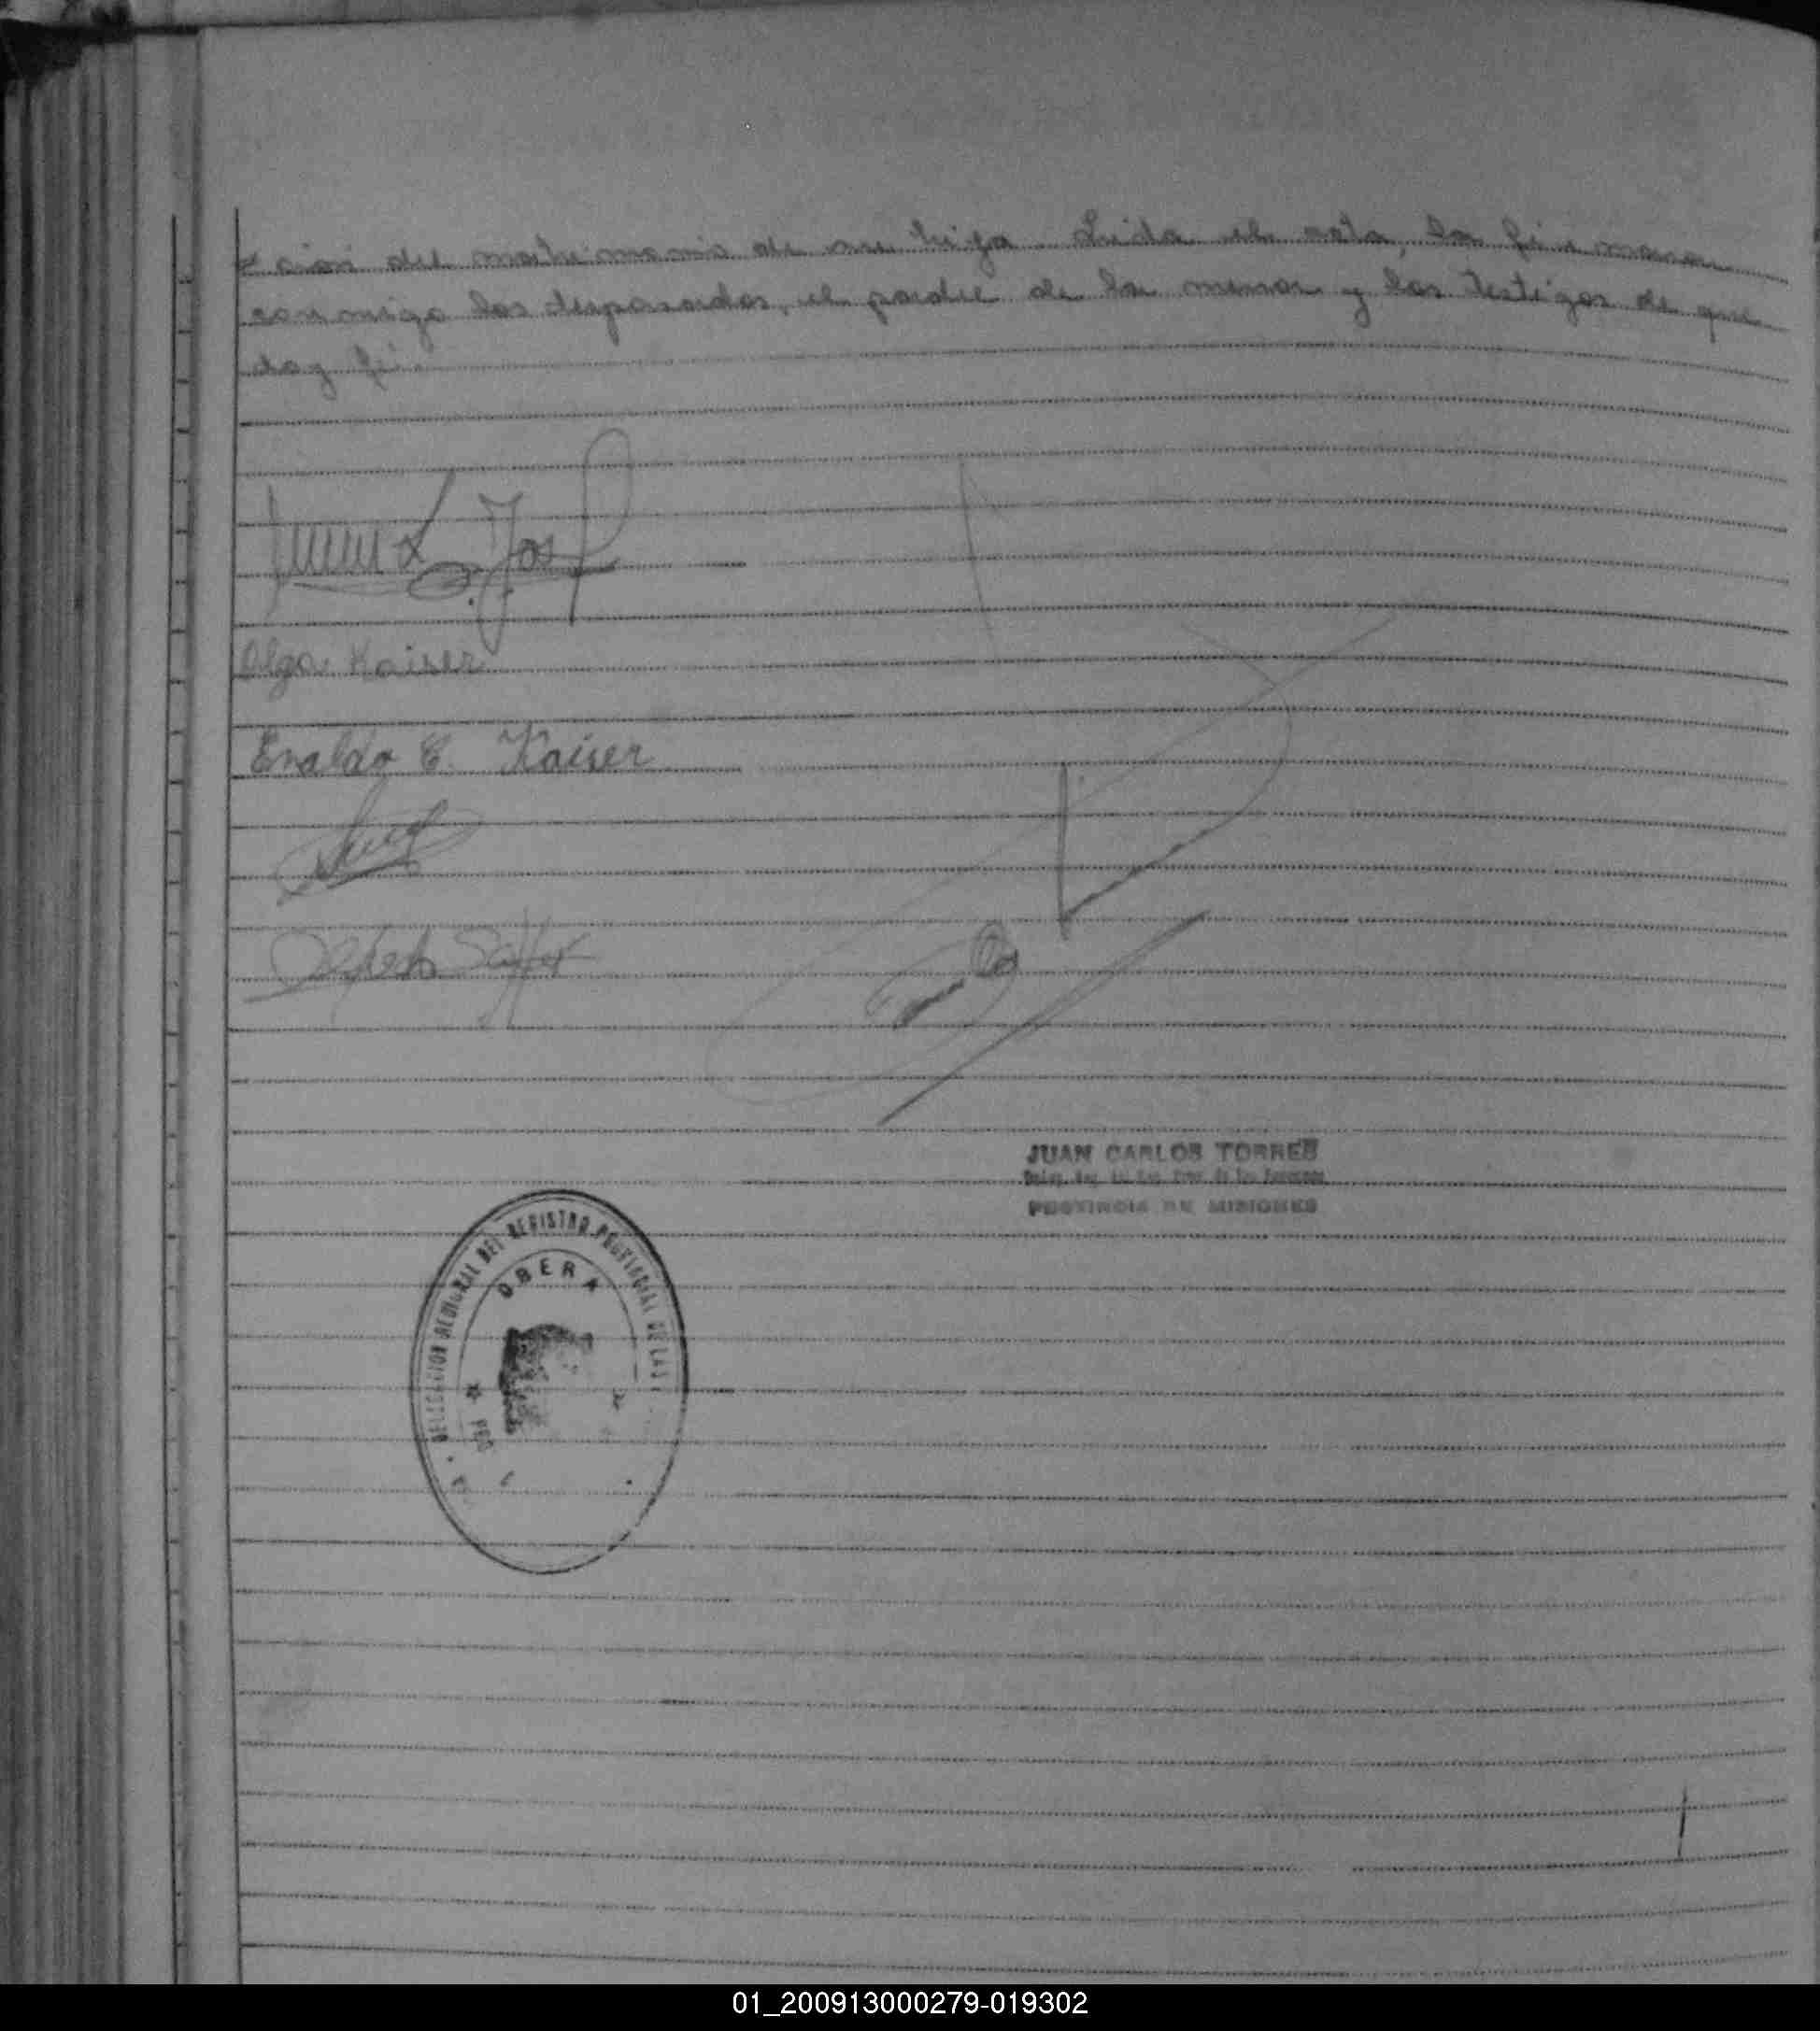 cion del matrimonio de su hija. Leida el acta, la firmaron
conmigo los desposados, el padre de la menor y los testigos de que
doy fé.
Olga Kaiser
Enaldo C. Kaiser
JUAN CARLOS TORRES
PROVINCIA DE MISIONES
DELEGACION REGIONAL DEL REGISTRO PROVINCIAL DE LAS
OBERA
01_200913000279-019302